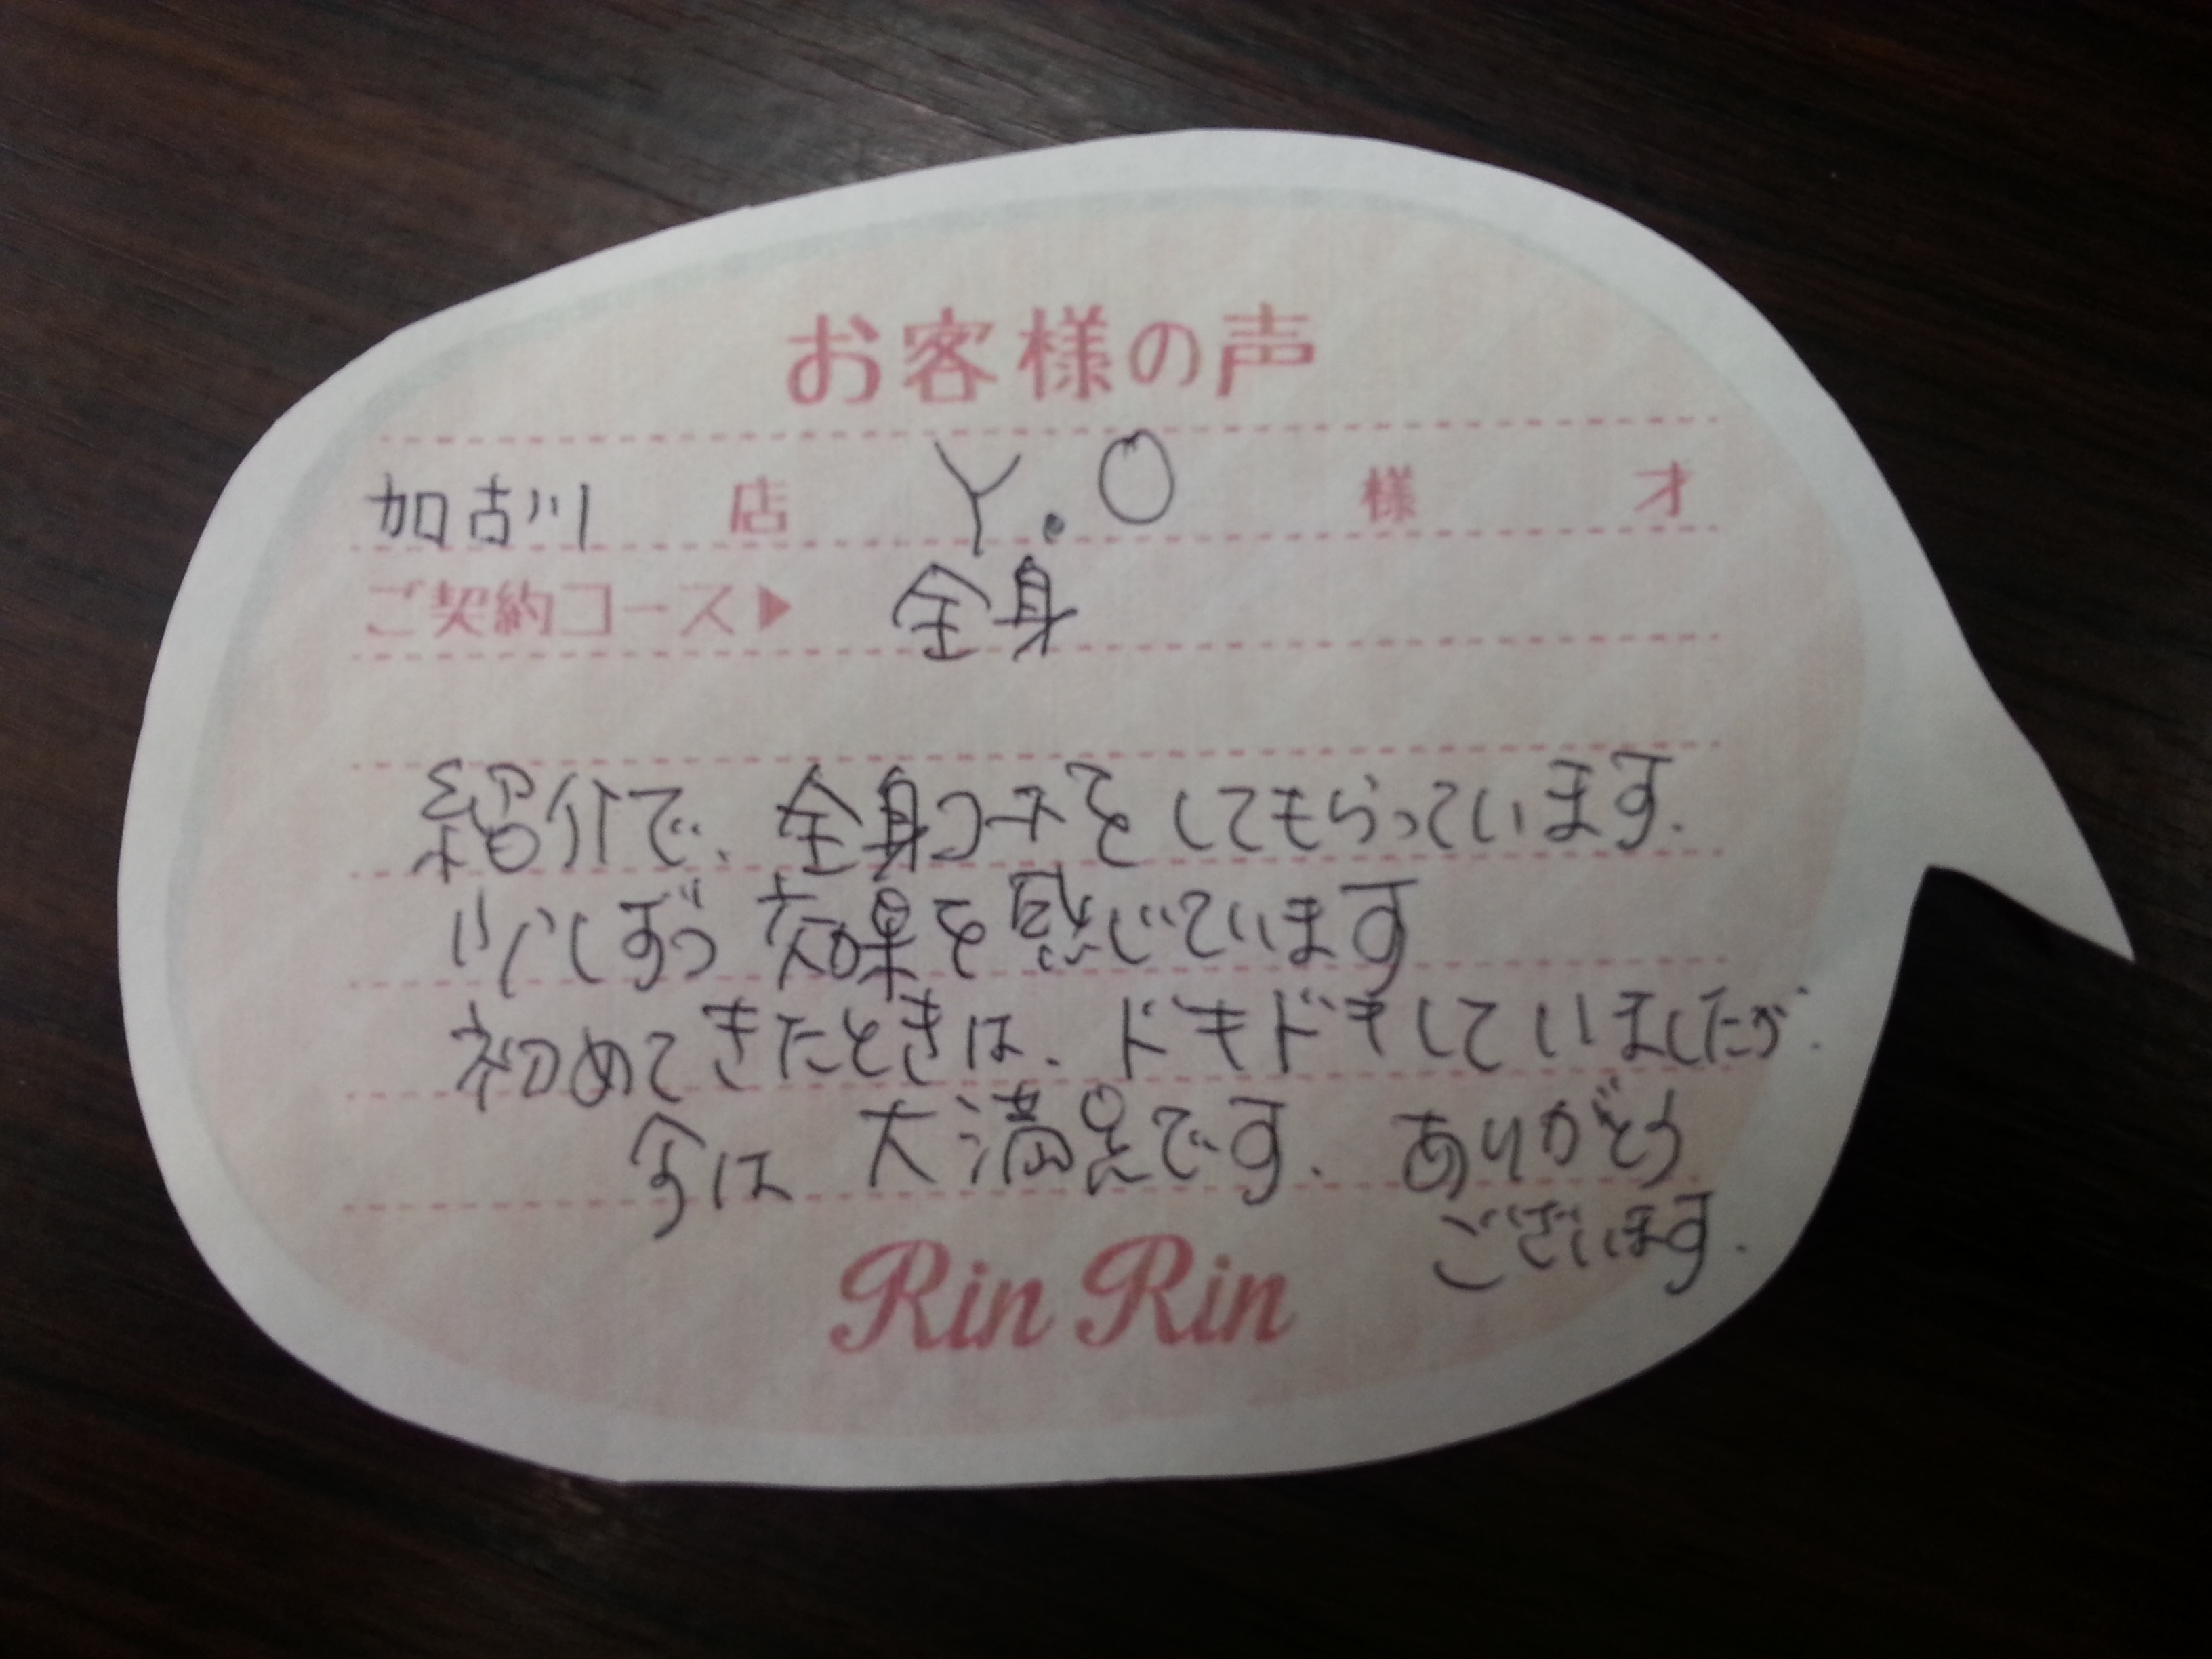 お客様の声
加古川 店 Y.O 様 才
ご契約コース▶ 全身
紹介で、全身コースをしてもらっています.
少しずつ効果を感じています
初めてきたときは、ドキドキしていましたが.
今は 大満足です. ありがとう
ございます.
Rin Rin